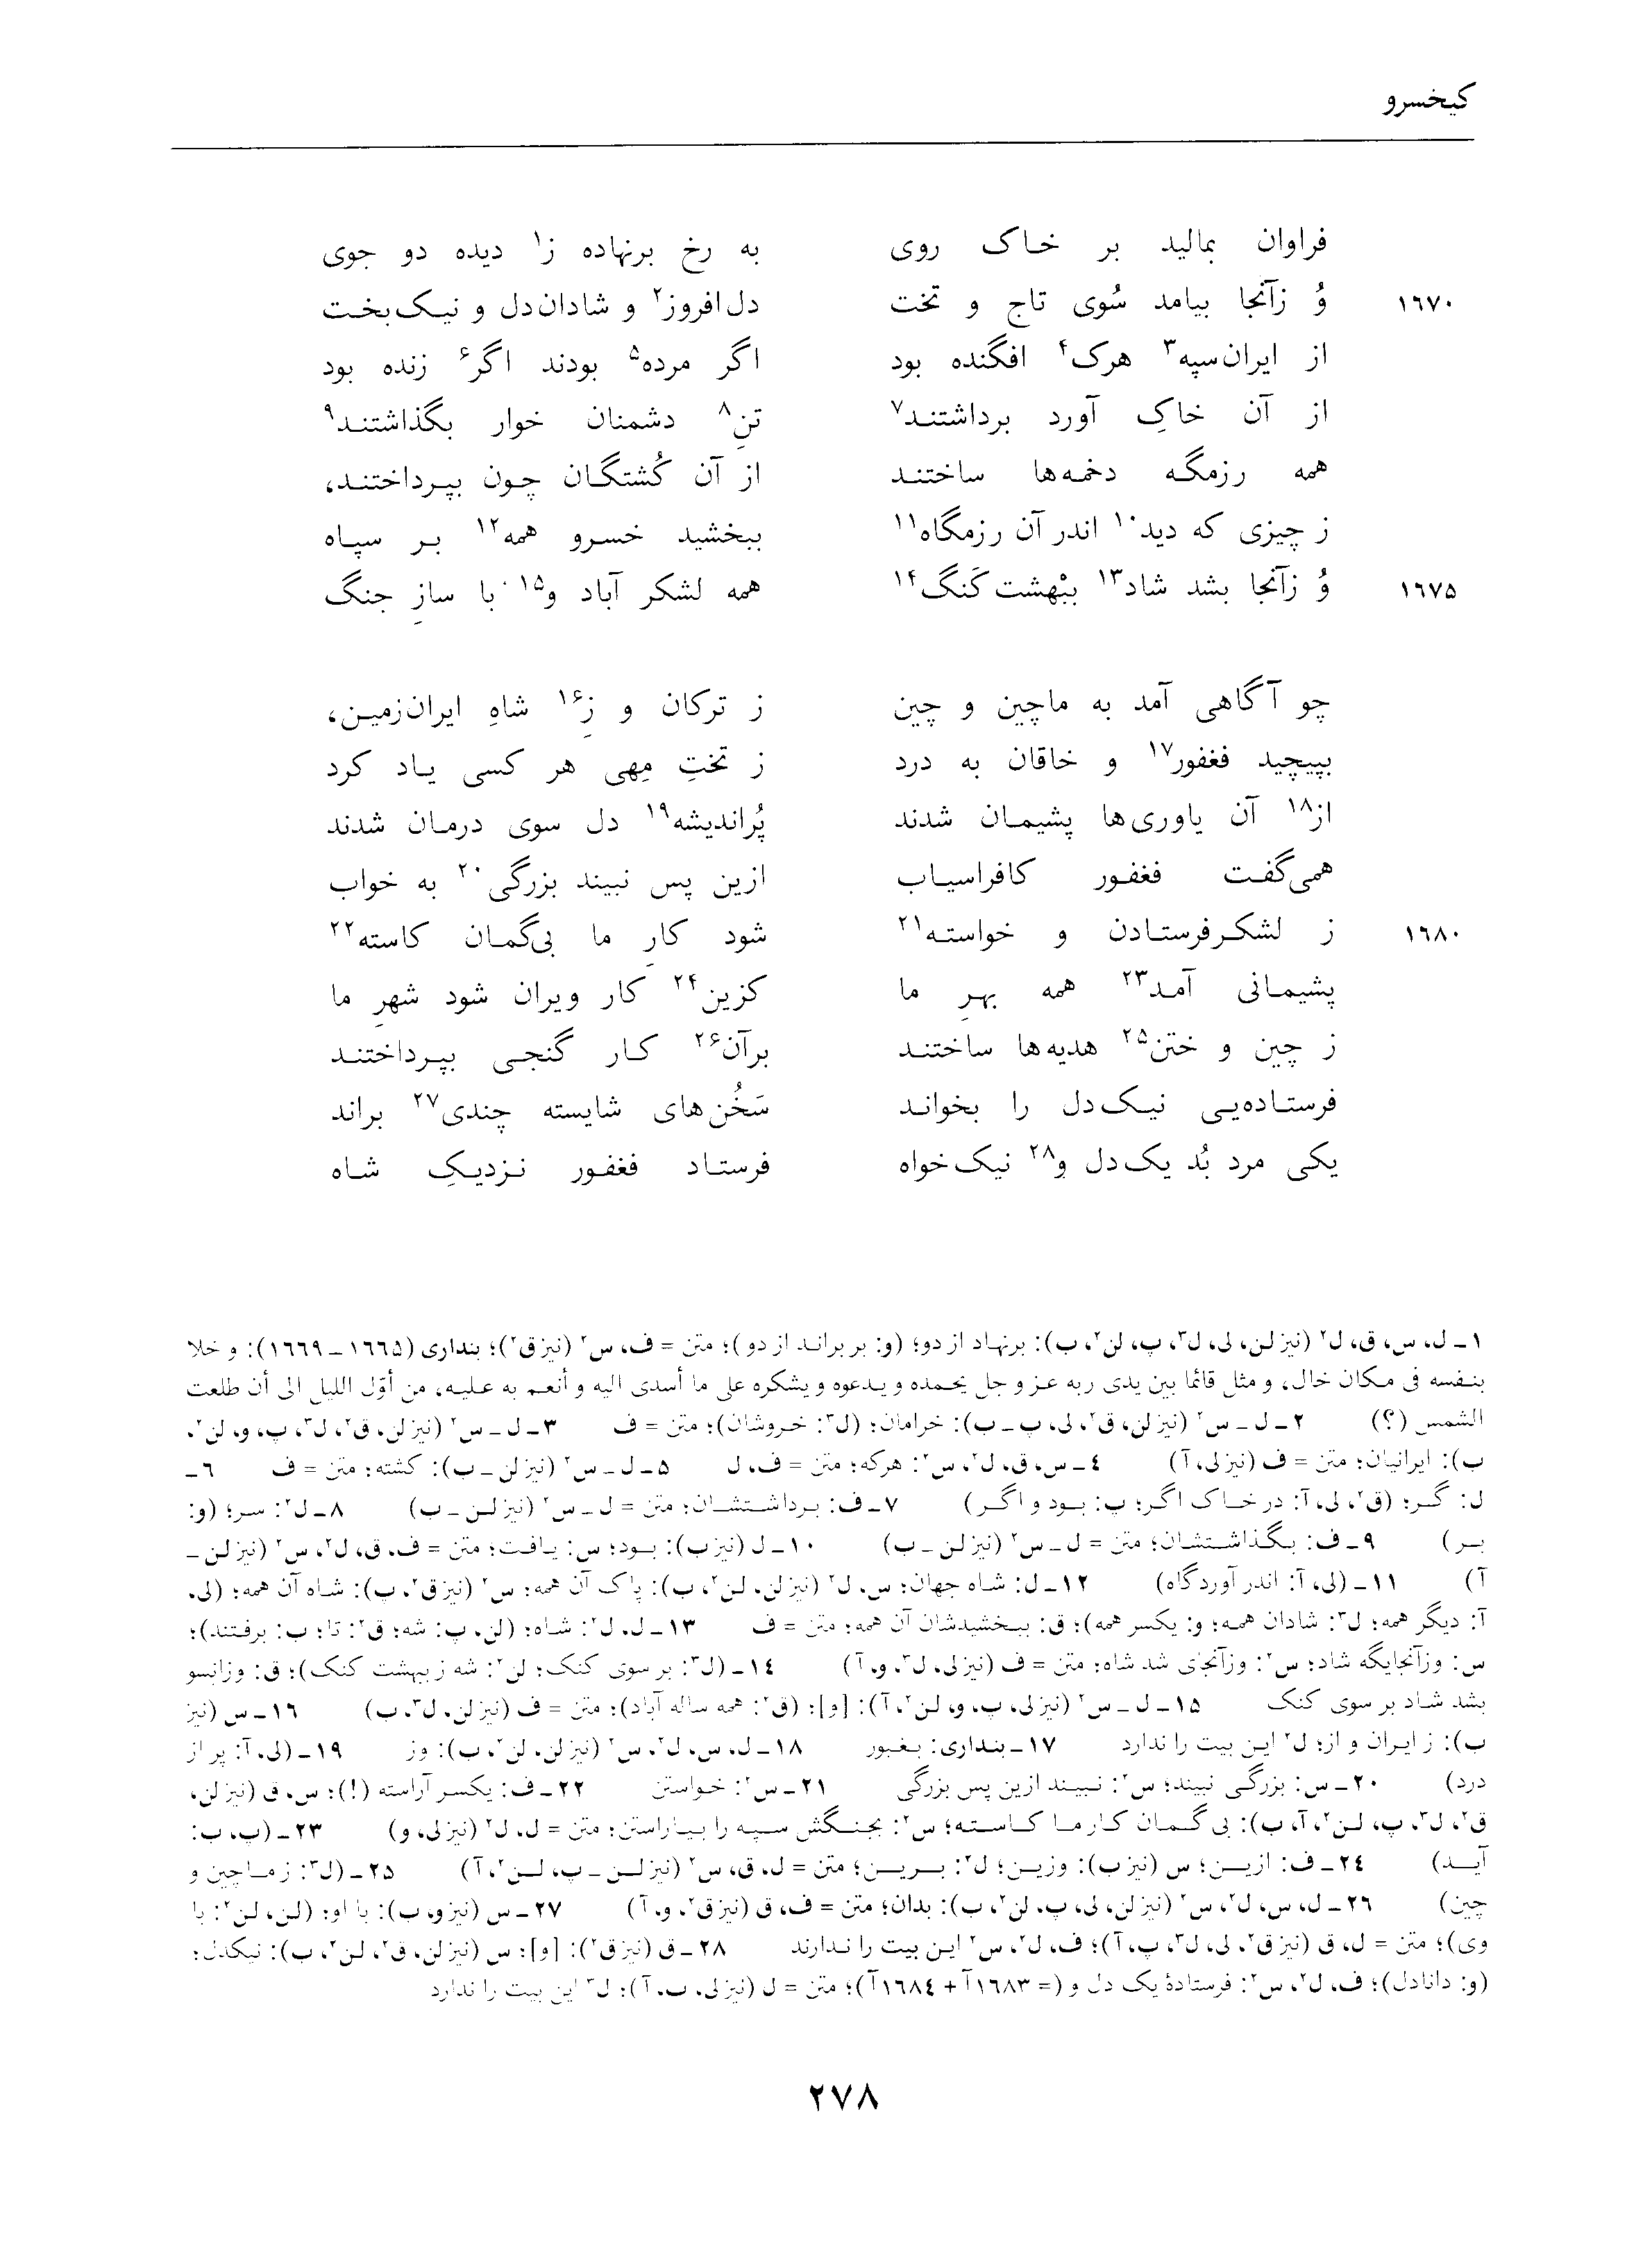 کیخسرو
فراوان بمالید بر خاک روی به رخ برنهاده ز۱ دیده دو جوی
۱۶۷۰ وُ زآنجا بیامد سُوی تاج و تخت دل‌افروز۲ و شادان‌دل و نیک‌بخت
از ایران‌سپه۳ هرک۴ افگنده بود اگر مرده۵ بودند اگر۶ زنده بود
از آن خاکِ آورد برداشتند۷ تنِ۸ دشمنان خوار بگذاشتند۹
همه رزمگه دخمه‌ها ساختند از آن کُشتگان چون بپرداختند،
ز چیزی که دید۱۰ اندر آن رزمگاه۱۱ ببخشید خسرو همه۱۲ بر سپاه
۱۶۷۵ وُ زآنجا بشد شاد۱۳ ببْهشت کَنگ۱۴ همه لشکر آباد و۱۵ با سازِ جنگ
چو آگاهی آمد به ماچین و چین ز ترکان و زِ۱۶ شاهِ ایران‌زمین،
بپیچید فغفور۱۷ و خاقان به درد ز تختِ مِهی هر کسی یاد کرد
از۱۸ آن یاوری‌ها پشیمان شدند پُراندیشه۱۹ دل سوی درمان شدند
همی‌گفت فغفور کافراسیاب ازین پس نبیند بزرگی۲۰ به خواب
۱۶۸۰ ز لشکرفرستادن و خواسته۲۱ شود کارِ ما بی‌گمان کاسته۲۲
پشیمانی آمد۲۳ همه بهرِ ما کزین۲۴ کار ویران شود شهرِ ما
ز چین و ختن۲۵ هدیه‌ها ساختند برآن۲۶ کار گنجی بپرداختند
فرستاده‌یی نیک‌دل را بخواند سَخُن‌های شایسته چندی۲۷ براند
یکی مرد بُد یک‌دل و۲۸ نیک‌خواه فرستاد فغفور نزدیکِ شاه
۱ـ ل، س، ق، ل۲ (نیز لن، لی، ل۳، پ، لن۲، ب): برنهاد از دو؛ (و: بر براند از دو)؛ متن = ف، س۲ (نیز ق۲)؛ بنداری (۱۶۶۵ ـ ۱۶۶۹): و خلا
بنفسه فی مکان خال، و مثل قائما بین یدی ربه عز و جل یحمده و یدعوه و یشکره علی ما أسدی الیه و أنعم به علیه، من أوّل اللیل الی أن طلعت
الشمس (؟) ۲ـ ل ـ س۲ (نیز لن، ق۲، لی، پ ـ ب): خرامان؛ (ل۳: خروشان)؛ متن = ف ۳ـ ل ـ س۲ (نیز لن، ق۲، ل۳، پ، و، لن۲،
ب): ایرانیان؛ متن = ف (نیز لی، آ) ۴ـ س، ق، ل۲، س۲: هرکه؛ متن = ف، ل ۵ـ ل ـ س۲ (نیز لن ـ ب): کشته؛ متن = ف ۶ـ
ل: گر؛ (ق۲، لی، آ: در خاک اگر؛ پ: بود و اگر) ۷ـ ف: برداشتشان؛ متن = ل ـ س۲ (نیز لن ـ ب) ۸ـ ل۲: سر؛ (و:
بر) ۹ـ ف: بگذاشتشان؛ متن = ل ـ س۲ (نیز لن ـ ب) ۱۰ـ ل (نیز ب): بود؛ س: یافت؛ متن = ف، ق، ل۲، س۲ (نیز لن ـ
آ) ۱۱ـ (لی، آ: اندر آوردگاه) ۱۲ـ ل: شاه جهان؛ س، ل۲ (نیز لن، لن۲، ب): پاک آن همه؛ س۲ (نیز ق۲، پ): شاه آن همه؛ (لی،
آ: دیگر همه؛ ل۳: شادان همه؛ و: یکسر همه)؛ ق: ببخشیدشان آن همه؛ متن = ف ۱۳ـ ل، ل۲: شاه؛ (لن، پ: شه؛ ق۲: تا؛ ب: برفتند)؛
س: وزآنجایگه شاد؛ س۲: وزآنجای شد شاه؛ متن = ف (نیز لی، ل۳، و، آ) ۱۴ـ (ل۳: بر سوی کنک؛ لن۲: شه ز بهشت کنک)؛ ق: وزانسو
بشد شاد بر سوی کنک ۱۵ـ ل ـ س۲ (نیز لی، پ، و، لن۲، آ): [و]؛ (ق۲: همه ساله آباد)؛ متن = ف (نیز لن، ل۳، ب) ۱۶ـ س (نیز
ب): ز ایران و از؛ ل۲ این بیت را ندارد ۱۷ـ بنداری: بغبور ۱۸ـ ل، س، ل۲، س۲ (نیز لن، لن۲، ب): وز ۱۹ـ (لی، آ: پر از
درد) ۲۰ـ س: بزرگی نبیند؛ س۲: نبیند ازین پس بزرگی ۲۱ـ س۲: خواستن ۲۲ـ ف: یکسر آراسته (!)؛ س، ق (نیز لن،
ق۲، ل۳، پ، لن۲، آ، ب): بی گمان کار ما کاسته؛ س۲: بجنگش سپه را بیاراستن؛ متن = ل، ل۲ (نیز لی، و) ۲۳ـ (پ، ب:
آید) ۲۴ـ ف: ازین؛ س (نیز ب): وزین؛ ل۲: برین؛ متن = ل، ق، س۲ (نیز لن ـ پ، لن۲، آ) ۲۵ـ (ل۳: ز ماچین و
چین) ۲۶ـ ل، س، ل۲، س۲ (نیز لن، لی، پ، لن۲، ب): بدان؛ متن = ف، ق (نیز ق۲، و، آ) ۲۷ـ س (نیز و، ب): با او؛ (لن، لن۲: با
وی)؛ متن = ل، ق (نیز ق۲، لی، ل۳، پ، آ)؛ ف، ل۲، س۲ این بیت را ندارند ۲۸ـ ق (نیز ق۲): [و]؛ س (نیز لن، ق۲، لن۲، ب): نیکدل؛
(و: دانادل)؛ ف، ل۲، س۲: فرستادهٔ یک دل و (= ۱۶۸۳آ + ۱۶۸۴آ)؛ متن = ل (نیز لی، پ، آ)؛ ل۳ این بیت را ندارد
۲۷۸